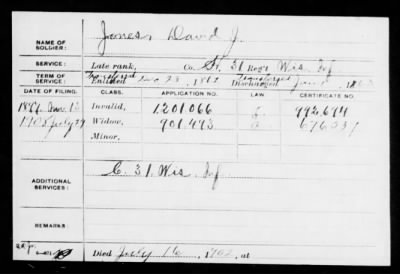 NAME OF SOLDIER: Jones, David J.
SERVICE: Late rank, Co. 31 Reg't Wis. Inf
TERM OF SERVICE: Transferred Enlisted 23, 1862 Discharged June
DATE OF FILING. CLASS. APPLICATION NO. LAW CERTIFICATE NO.
Invalid, 1201066 992.694
1908 July 29 Widow, 901.493
Minor,
ADDITIONAL SERVICES: C. 31. Wis. Inf
REMARKS:
Died July 16, 1908, at